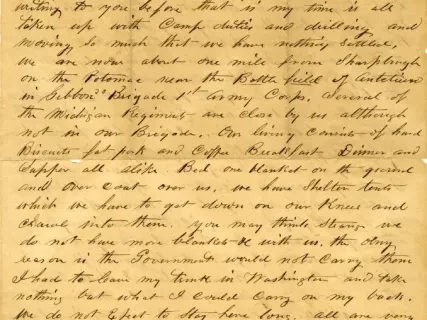 writing to you before that is my time is all
taken up with Camp duties and drilling and
moving so much that we have nothing settled,
we are now about one mile from Sharpsburgh
on the Potomac near the Battle field of Antietam
in Gibbon's Brigade 1st Army Corps. Several of
the Michigan Regiments are close by us although
not in our Brigade. Our living consists of hard
Biscuits fat pork and Coffee Breakfast Dinner and
Supper all alike. Bed one blanket on the ground
and over coat over us. we have shelter tents
which we have to get down on our Knees and
Crawl into them. you may think strange we
do not have more blankets with us. the only
reason is the Government would not carry them
I had to leave my trunk in Washington and take
nothing but what I could carry on my back.
We do not Expect to stay here long. all are very